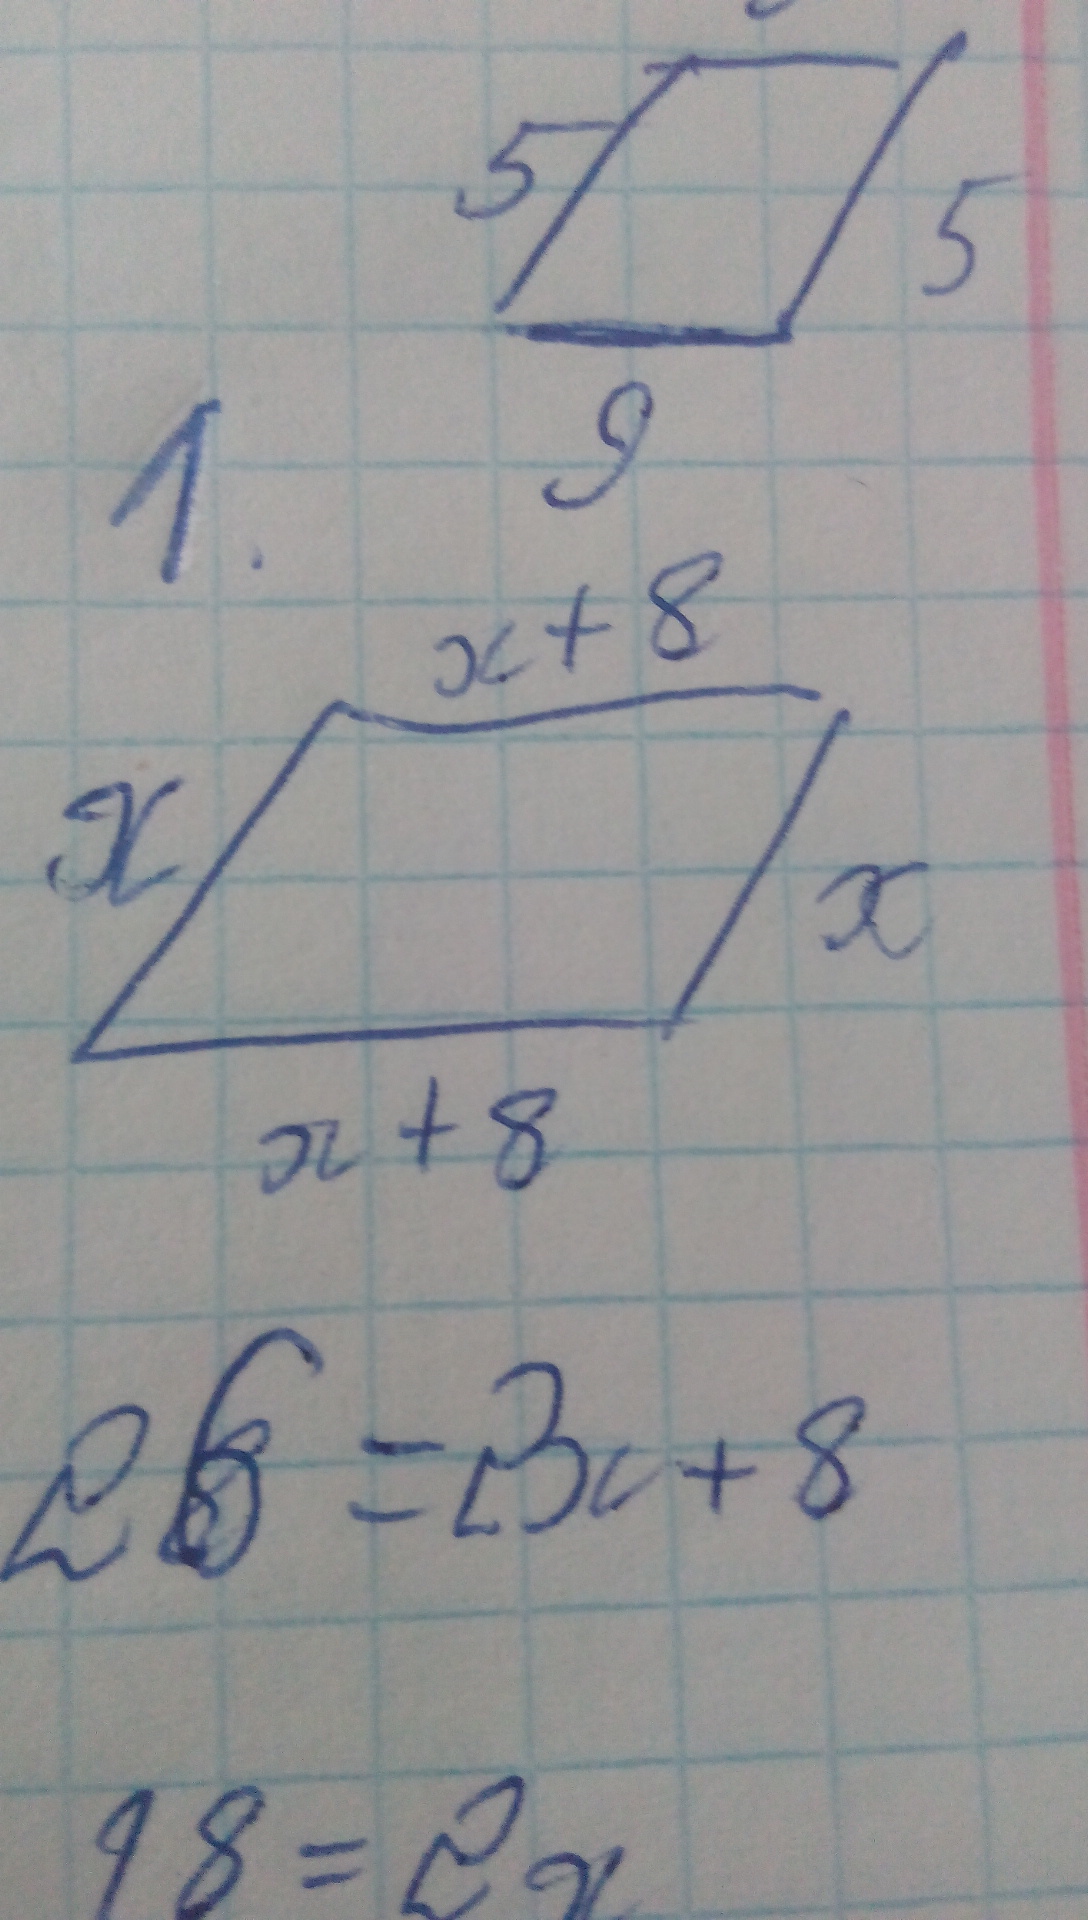 5
5
9
1.
x + 8
x
x
x + 8
26 = 2x + 8
18 = 2x